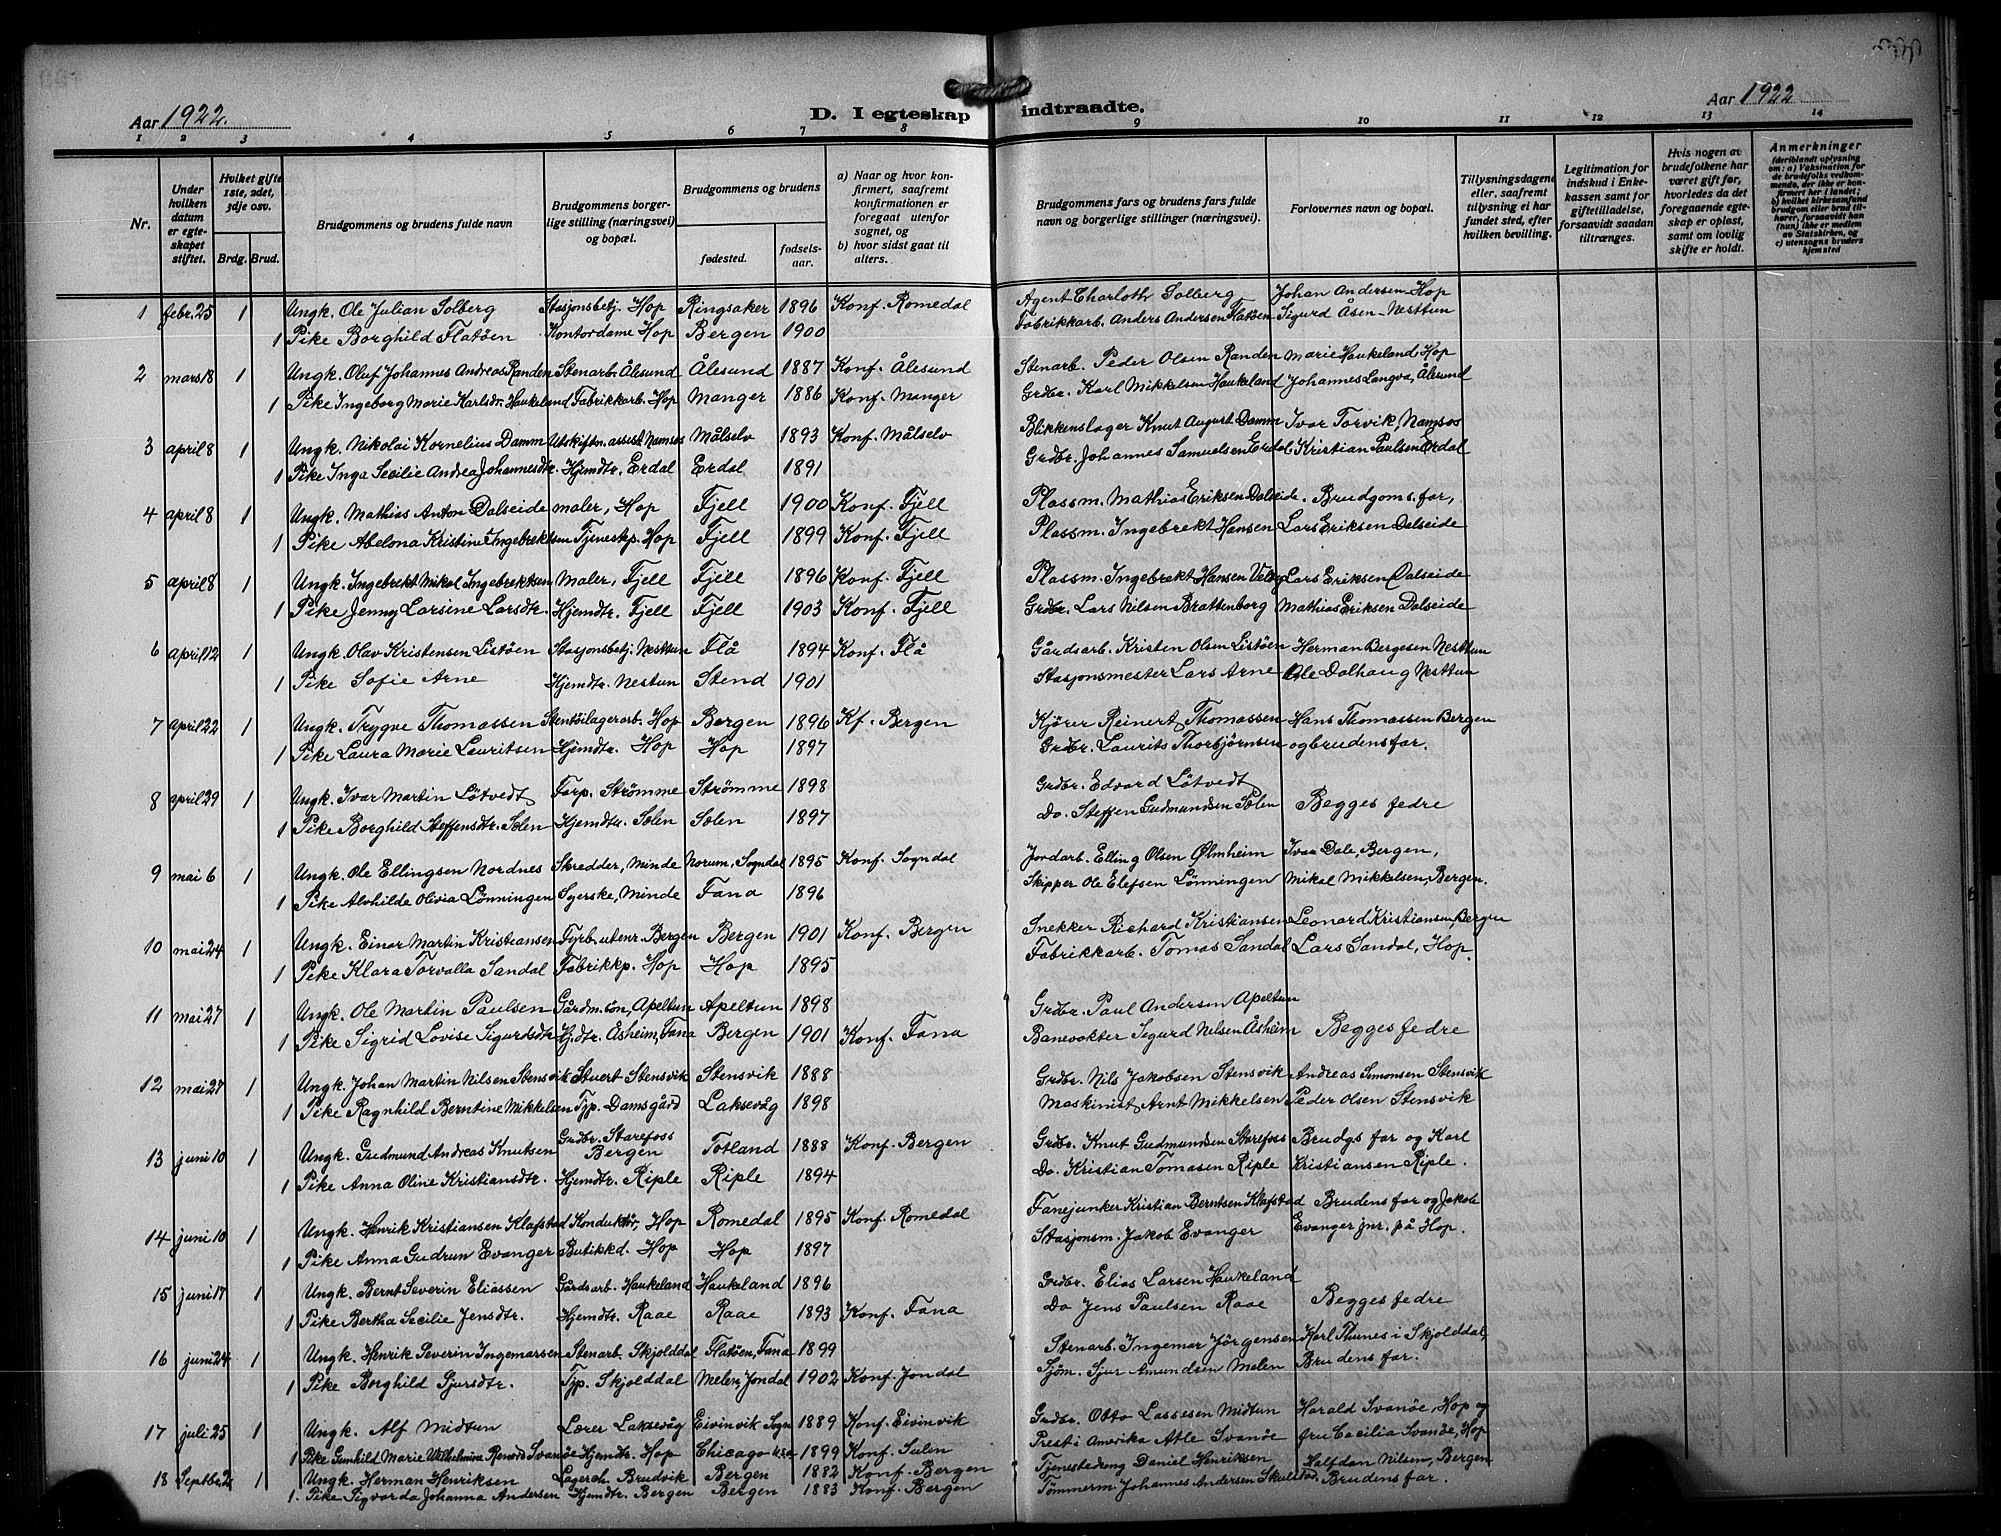 Aar 1922.
D. I egteskap indtraadte.
Aar 1922
1 2 3 4 5 6 7 8 9 10 11 12 13 14
Nr.
Under hvilken datum er egteskapet stiftet.
Hvilket gifte 1ste, 2det, 3dje osv.
Brdg. Brud.
Brudgommens og brudens fulde navn
Brudgommens borgerlige stilling (næringsvei) og bopæl.
Brudgommens og brudens
fødested.
fødselsaar.
a) Naar og hvor konfirmert, saafremt konfirmationen er foregaat utenfor sognet, og
b) hvor sidst gaat til alters.
Brudgommens fars og brudens fars fulde navn og borgerlige stillinger (næringsvei).
Forlovernes navn og bopæl.
Tillysningsdagene eller, saafremt tillysning ei har fundet sted, efter hvilken bevilling.
Legitimation for indskud i Enkekassen samt for giftetilladelse, forsaavidt saadan tiltrænges.
Hvis nogen av brudefolkene har været gift før, hvorledes da det foregaaende egteskap er opløst, samt om lovlig skifte er holdt.
Anmerkninger (deriblandt oplysning om: a) Vaksination for de brudefolks vedkommende, der ikke er konfirmert her i landet; b) hvilket kirkesamfund brudgom eller brud tilhører, forsaavidt han (hun) ikke er medlem av Statskirken, og c) utensogns bruders hjemsted
1 febr. 25 1 Ungk. Ole Julian Solberg Stasjonsbetj. Hop Ringsaker 1896 Konf. Romedal Agent Charloth Solberg Johan Andersen Hop
1 Pike Borghild Flatöen Kontordame Hop Bergen 1900 Fabrikkarb. Anders Andersen Flatöen Sigurd Åsen - Nesttun
2 mars 18 1 Ungk. Oluf Johannes Andreas Randen Stenarb. Ålesund Ålesund 1887 Konf. Ålesund Stenarb. Peder Olsen Randen Marie Haukeland, Hop
1 Pike Ingeborg Marie Karlsdr. Haukeland Fabrikkarb. Hop Manger 1886 Konf. Manger Grdbr. Karl Mikkelsen Haukeland Johannes Langva, Ålesund
3 april 8 1 Ungk. Nikolai Kornelius Damm Utskiftn. assist. Namsos Målselv 1893 Konf. Målselv Blikkenslager Knut August Damm Ivar Torvik, Namsos
1 Pike Inga Secilie Andrea Johannesdtr. Hjemdtr. Erdal Erdal 1891 Grdbr. Johannes Samuelsen Erdal Kristian Paulsen Erdal
4 april 8 1 Ungk. Mathias Anton Dalseide maler, Hop Fjell 1900 Konf. Fjell Plassm. Mathias Eriksen Dalseide. Brudgoms far,
1 Pike Abelona Kristine Ingebrektsen Tjenestp. Hop Fjell 1899 Konf. Fjell Plassm. Ingebrekt Hansen Lars Eriksen Dalseide
5 april 8 1 Ungk. Ingebrekt Nikol Ingebrektsen Maler, Fjell Fjell 1896 Konf. Fjell Plassm. Ingebrekt Hansen Lars Eriksen Dalseide
1 Pike Jenny Larsine Larsdtr. Hjemdtr. Fjell Fjell 1903 Konf. Fjell Grdbr. Lars Nilsen Brattenborg Mathias Eriksen Dalseide
6 april 12 1 Ungk. Olav Kristensen Listöen Stasjonsbetj. Nesttun Flå 1894 Konf. Flå Gårdsarb. Kristen Olsen Listöen Herman Bergesen Nesttun
1 Pike Sofie Arne Hjemdtr. Nestun Stend 1901 Stasjonsmester Lars Arne Ole Dalhaug Nesttun
7 april 22 1 Ungk. Trygve Thomassen Stentöilagerarb. Hop Bergen 1896 Kf. Bergen Kjörer Reinert Thomassen Hans Thomassen Bergen
1 Pike Laura Marie Lauritsen Hjemdtr. Hop Hop 1897 Grdbr. Laurits Thorbjörnsen og brudens far.
8 april 29 1 Ungk. Ivar Martin Lötvedt Farp. Strömme Strömme 1898 Grdbr. Edvard Lötvedt
1 Pike Borghild Steffensdtr. Sölen Hjemdtr. Sölen Sölen 1897 Do. Steffen Gudmundsen Sölen Begges fedre
9 mai 6 1 Ungk. Ole Ellingsen Nordnes Skredder, Minde Norum, Sogndal 1895 Konf. Sogndal Jordarb. Elling Olsen Ølmheim Ivar Dale, Bergen,
1 Pike Alvhilde Olivia Lönningen Syerske, Minde Fana 1896 Skipper Ole Elefsen Lönningen Mikal Mikkelsen, Bergen.
10 mai 24 1 Ungk. Einar Martin Kristiansen Fyrb. utenr. Bergen Bergen 1901 Konf. Bergen Snekker Richard Kristiansen Lenard Kristiansen, Bergen
1 Pike Klara Torvalla Sandal Fabrikkp. Hop Hop 1895 Fabrikkarb. Tomas Sandal Lars Sandal, Hop.
11 mai 27 1 Ungk. Ole Martin Paulsen Gårdm. sön, Apeltun Apeltun 1898 Grdbr. Paul Andersen Apeltun
1 Pike Sigrid Lovise Sigurdsdtr. Hjdtr. Åsheim, Fana Bergen 1901 Konf. Fana Banevokter Sigurd Nilsen Åsheim Begges fedre
12 mai 27 1 Ungk. Johan Martin Nilsen Stensvik Stuert Stensvik Stensvik 1888 Grdbr. Nils Jakobsen Stensvik Andreas Simonsen Stensvik
1 Pike Ragnhild Berntine Mikkelsen Typ. Damsgård Laksevåg 1898 Maskinist Arnt Mikkelsen Peder Olsen Stensvik
13 juni 10 1 Ungk. Gudmund Andreas Knutsen Grdbr. Starefoss Bergen Totland 1888 Konf. Bergen Grdbr. Knut Gudmundsen Starefoss Brudgs far og Karl
1 Pike Anna Oline Kristiansdtr. Hjemdtr. Riple Riple 1894 Do. Kristian Tomasen Riple Kristiansen Riple.
14 juni 10 1 Ungk. Henrik Kristiansen Klafstad Konduktör, Hop Romedal 1895 Konf. Romedal Fanejunker Kristian Berntsen Klafstad Brudens far og Jakob
1 Pike Anna Gudrun Evanger Butikkd. Hop Hop 1897 Stasjonsm. Jakob Evanger Evanger jnr. på Hop.
15 juni 17 1 Ungk. Bernt Severin Eliassen Gårdsarb. Haukeland Haukeland 1896 Grdbr. Elias Larsen Haukeland
1 Pike Bertha Secilie Jensdtr. Hjemdtr. Raae Raae 1893 Konf. Fana Do Jens Paulsen Raae Begges fedre
16 juni 24 1 Ungk. Henrik Severin Ingemarssen Stenarb. Skjolddal Flatöen, Fana 1899 Stenarb. Ingemar Jörgensen Karl Thunes i Skjolddal,
1 Pike Borghild Sjursdtr. Typ. Skjolddal Melen, Jondal 1902 Konf. Jondal Sjöm. Sjur Amundsen Melen Brudens far.
17 juli 25 1 Ungk. Alf Midtun Lærer Laksevåg Eivinvik Sogn 1889 Konf. Eivinvik Grdbr. Otto Lassesen Midtun Harald Svanöe, Hop og
1 Pike Gunhild Marie Wilhelmine Svanöe Hjemdtr. Hop Chicago usa 1899 Konf. Sulen Prest i Amerika Atle Svanöe fru Cecilia Svanöe, Hop
18 Septbr. 2 1 Ungk. Herman Henriksen Lagerch. Brudvik Bergen 1882 Konf. Bergen Tjenestedreng Daniel Henriksen Halfdan Nilsen, Bergen
1. Pike Sigvarda Johanna Andersen Hjemdtr. Bergen Bergen 1883 Konf. Bergen Tömmerm. Johannes Andersen Skulstad Brudens far.